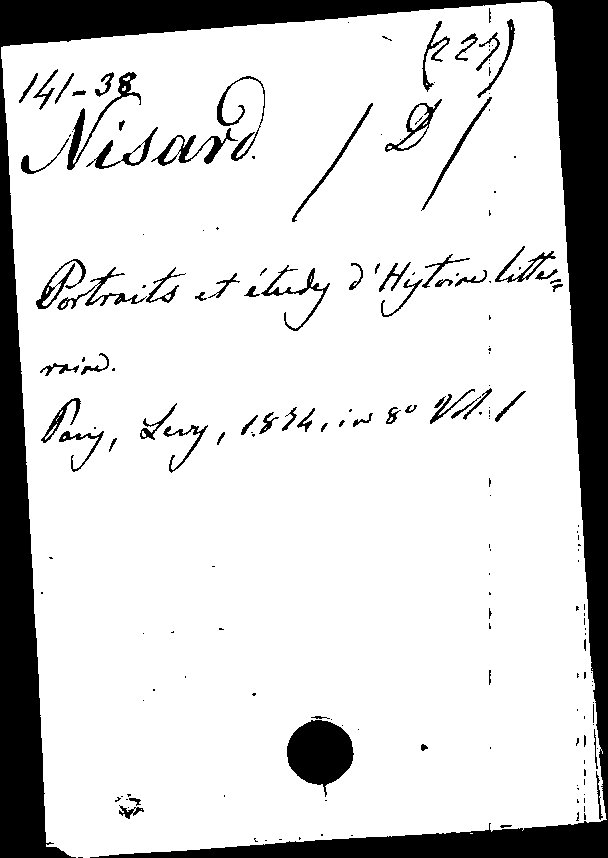 (227)
141-38
Nisard / D /
Portraits et études d'Histoire litte=
raire.
Paris, Levy, 1874, in 8º Vol. 1